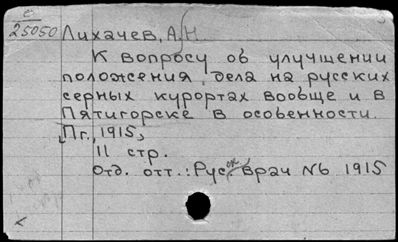 с
25050 Лихачев, А.Н.
К вопросу об улучшении
положения дела на русских
серных курортах вообще и в
Пятигорске в особенности.
Пг., 1915,
11 стр.
Отд. отт.: Русск врач №6 1915